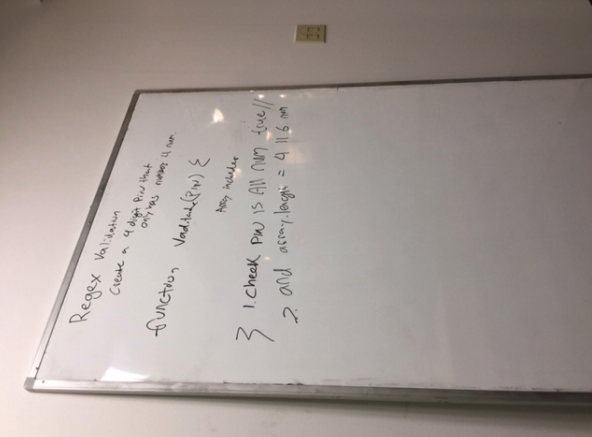 Regex Validation
Create a 4 digit Pin that
only has numbers 4 num
function Validate(PIN) {
Array includes
} 1. Check PIN is All num true//
2. and array.length = 4 || 6 num